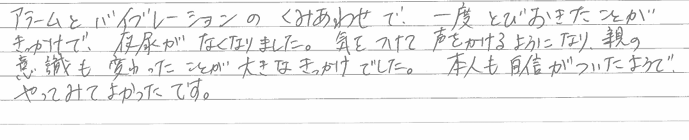 アラームとバイブレーションのくみあわせで、一度とびおきたことが
きっかけで、夜尿がなくなりました。気をつけて声をかけるようになり、親の
意識も変わったことが大きなきっかけでした。本人も自信がついたようで、
やってみてよかったです。